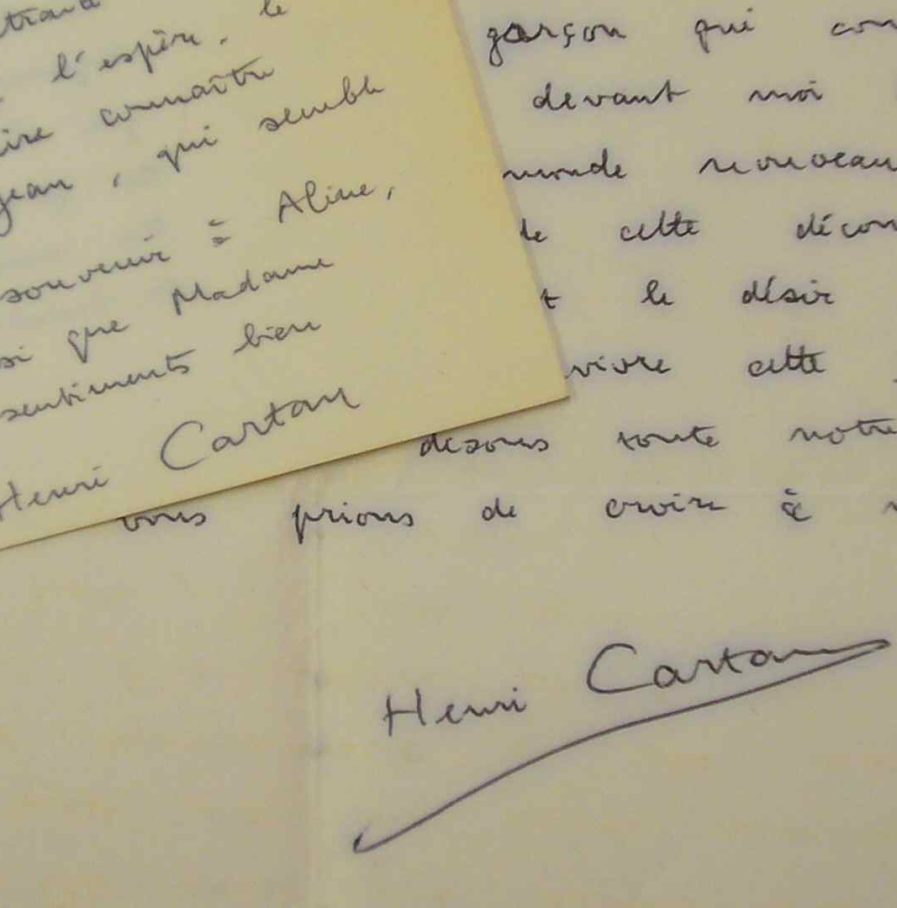 l'espère. le
connaître
jean, qui semble
souvenir à Aline,
si que Madame
sentiments bien
Henri Cartan
garçon qui con
devant moi
monde nouveau
de cette décou
t le désir
vivre cette
disons toute notre
vous prions de croire à
Henri Cartan